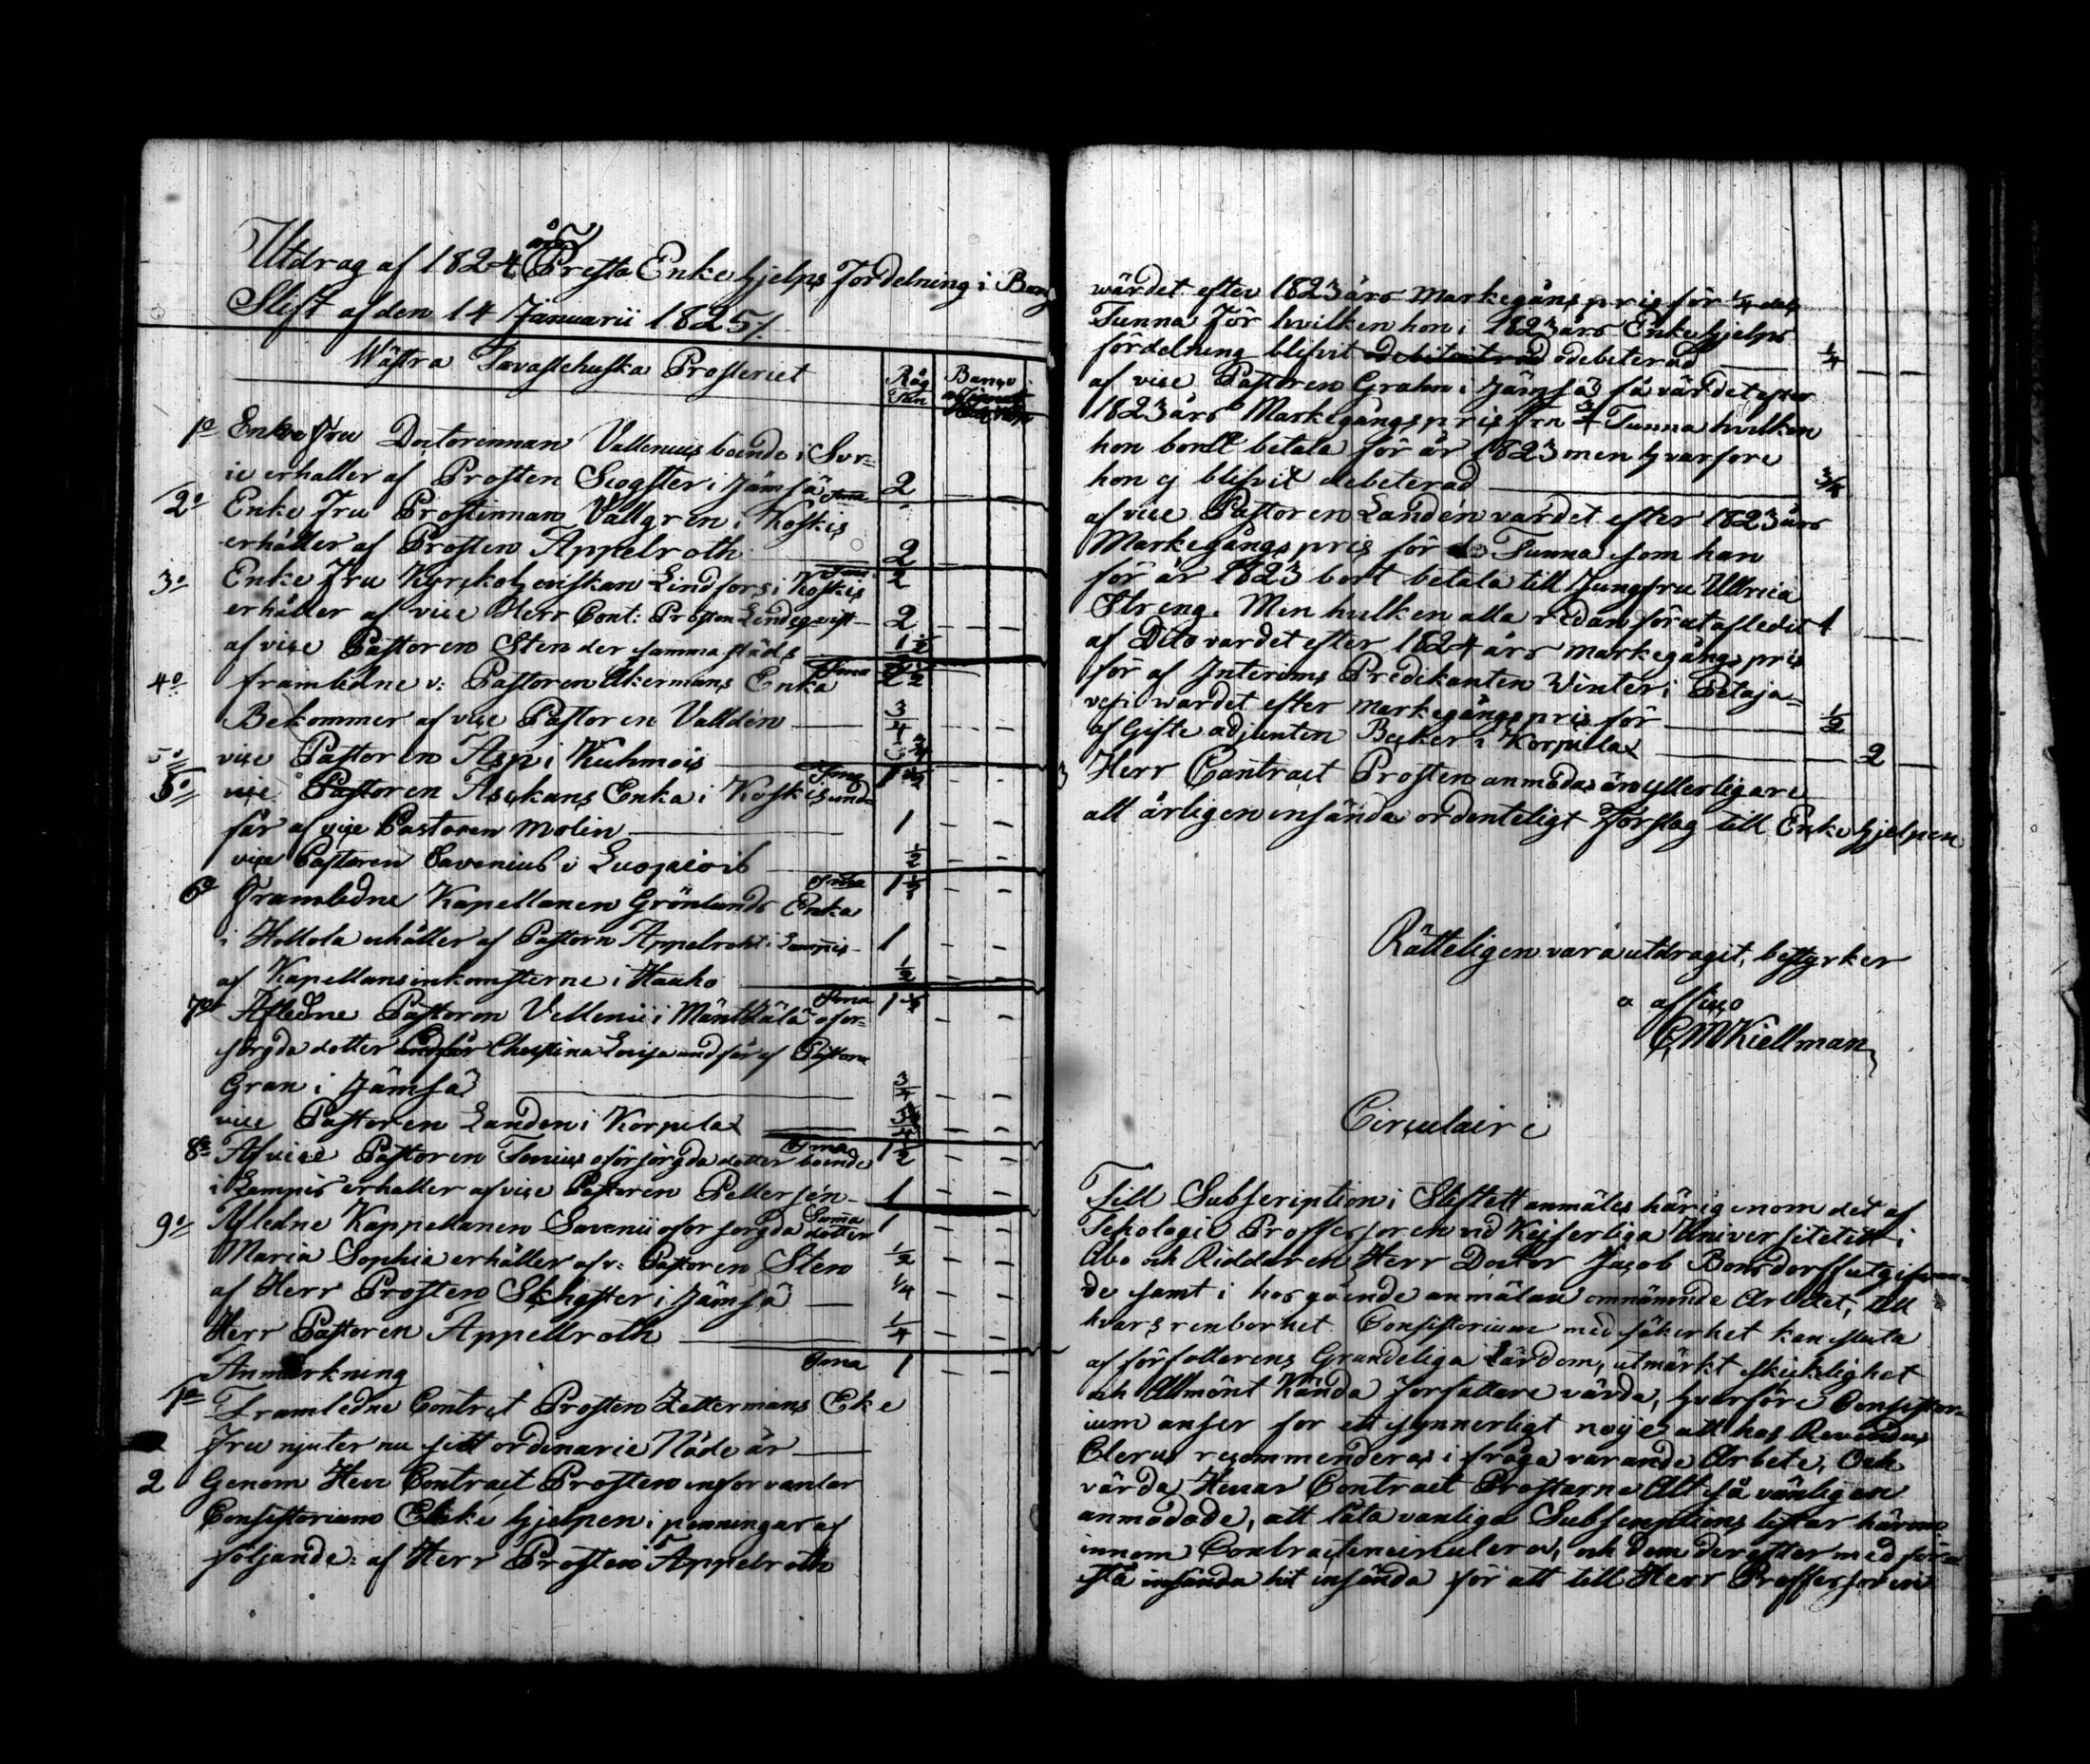 Utdrag af 1824 års Presta Enkehjelps fördelning i Borg
Stift af den 14 Januarii 1825/.
Wästra Tavastehuska Prosteriet
Råg Banco
Tun
1o Enke Fru Doctorinnan Vallenius boende i Sor=
ie erhaller af Prosten Scogster i Jämsä 2
2o Enke Fru Prostinnan Vallgren i Koskis Sma
erhåller af Prosten Appelroth 2
3o Enke Fru Kyrckoherdskan Lindfors i Koskis Sma 2
erhåller af vice Herr Cont: Prosten Lindeqvist 2
af vice Pastoren Sten der samma städs 1 1/2
4o framledne v: Pastoren Akermans Enka Sma 2 1/2
Bekommer af vice Pastoren Valldén 3/4
vice Pastoren Asp i Kuhmois 3/4
5o vice Pastoren Asckans Enka i Koskis und Sma 1 1/2
får af vice Pastoren Molin 1
vice Pastoren Savenius i Luopiois 1/2
6o Framledne Kapellanen Grönlunds Enka Sma 1 1/2
i Hollola erhåller af Pastorn Appelroht i Lampis 1
af Kapellansinkomsterne i Hauho 1/2
7o Afledne Pastoren Vellenii i Mäntsälä ofor= Sma 1 1/2
sörgda dotter Christina Lovisa und får af Pastorn
Gran i Jämsä 3/4
vice Pastoren Landen i Korpilax 3/4
8o Af vice Pastoren Fonius oförsörgda dotter boende Sma 1 1/2
i Lampis erhaller af vice Pastoren Pettersén 1
9o Afledne Kappellanen Savenii oforsorgda dotter Suma 1
Maria Sophia erhåller af v: Pastoren Sten 1/2
af Herr Prosten Skogster i Jämsä 1/4
Herr Pastoren Appellroth 1/4
Anmärkning Sma 1
1o Framledne Contract Prosten Zettermans Eke
Fru njuter nu sitt ordinarie Nåde år
2 Genom Herr Contract Prosten inforvantar
Consistorium Enke hjelpen i penningar af
följande: af Herr Prosten Appelroth
wärdet efter 1823 års Markegångspris för 1/4 dels
Tunna för hvilken hon i 1823 års Enkehjelps
fördelning blifvit odebiterad 1/4
af vice Pastoren Grahn i Jämsä få värdet efter
1823 års Markegångspris för 3/4 Tunna hvilken
hon bordt betala för år 1823 men hvarfore
hon ej blifvit debeterad 3/4
af vice Pastoren Landén vardet efter 1823 års
Markegångspris för Tunna som han
för år 1823 bort betala till Jungfru Ullrica
Streng. Men hvilken alla redan förut afledit 1
af Dito vardet efter 1824 års markegångs pris
för af Interims Predikanten Winter i Petaja=
vesi wardet efter markegångspris för 1/2
af Gifte adjunten Becker i Korpilax 2
3 Herr Contract Prosten anmodas än ytterligare
att årligen insända ordenteligt förslag till Enkehjelpen
Rätteligen vara utdragit, bestyrker
ex officio
C M Kiellman
Circulaire
Till Subscription i Stiftett anmäles härigenom det af
Teologie Professoren vid Kejserliga Universitetet i
Åbo och Riddaren Herr Doctor Jacob Bonsdorff utgifvan=
de samt i hosgående anmälan omnämnde Arbetet, till
hvars renborhet Consistorium med säkerhet kan sluta
af författarens Grundeliga Lärdom, utmärkt skickelighet
och Allmänt Kända författare värda, hvarföre Consistor=
ium anser for ett synnerligt nöje att hos Revendus
Clerus recommendera i fråga varande Arbete, Och
värda Herrar Contract Prostarne Allt så vänligen
anmodade, att låta vanliga Subscriptions listor härom
innom Contracten circulera, och dem derefter med förs
sta hit insända för att till Herr Professoren